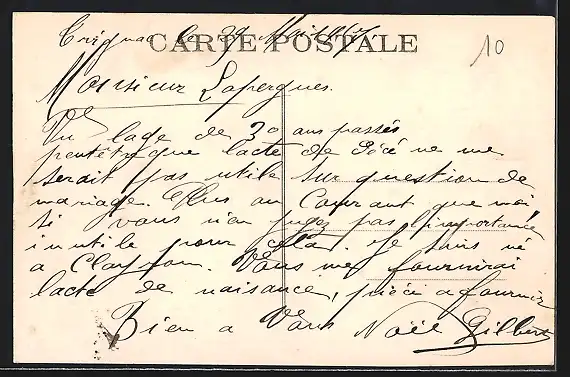 le 27
CARTE POSTALE
10
Monsieur Lapergues.
Vu lage de 30 ans passés
peutêtre que lacte de Décé ne me
serait pas utile sur question de
mariage. Plus au Courant que moi
si vous n'en jugez pas l'importance
inutile pour cela. Je suis né
a Vous me fournirai
lacte de naisance, pièce a fournir
Bien a Vous Noël Gilbert